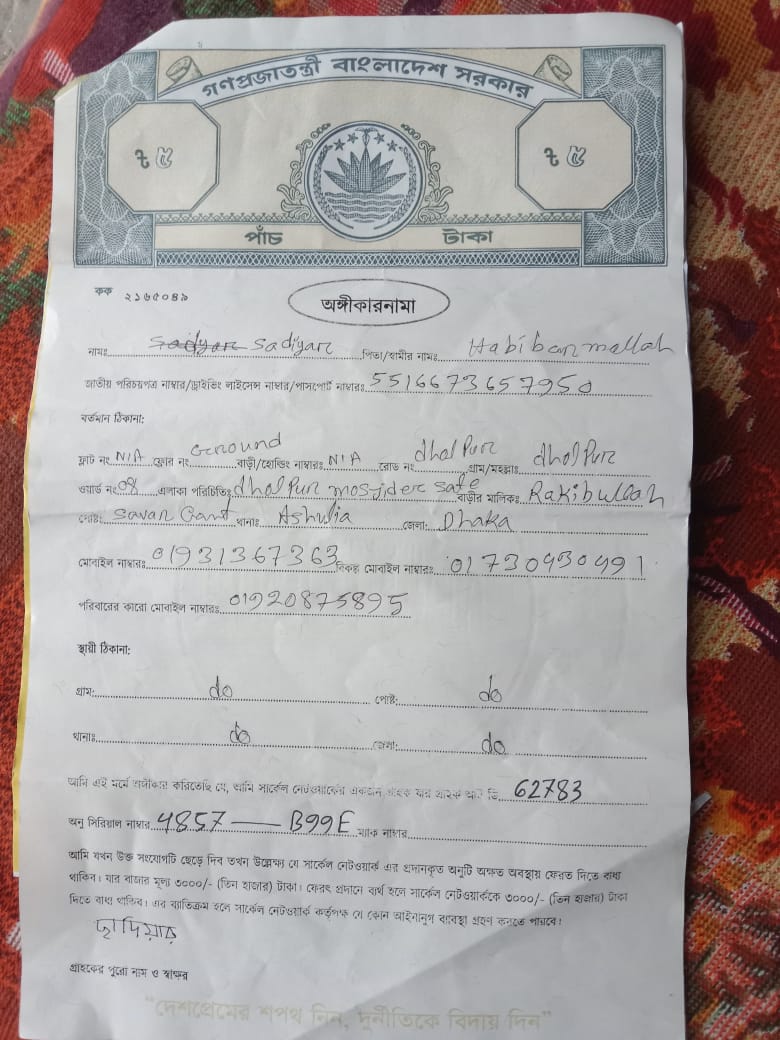 গণপ্রজাতন্ত্রী বাংলাদেশ সরকার
৳ ৫ ৳ ৫
পাঁচ টাকা
কক ২১৬৫০৪৯
অঙ্গীকারনামা
নামঃ Sadiyar পিতা/স্বামীর নামঃ Habiban mallah
জাতীয় পরিচয়পত্র নাম্বার/ড্রাইভিং লাইসেন্স নাম্বার/পাসপোর্ট নাম্বারঃ 5516673657950
বর্তমান ঠিকানা:
ফ্লাট নং N/A ফ্লোর নং Ground বাড়ী/হোল্ডিং নাম্বারঃ N/A রোড নং dholpur গ্রাম/মহল্লাঃ dholpur
ওয়ার্ড নং 08 এলাকা পরিচিতিঃ dholpur mosjider sathe বাড়ীর মালিকঃ Rakibullah
পোষ্টঃ Savar Cant থানাঃ Ashulia জেলা: Dhaka
মোবাইল নাম্বারঃ 01931367363 বিকল্প মোবাইল নাম্বারঃ 01730930991
পরিবারের কারো মোবাইল নাম্বারঃ 01920875895
স্থায়ী ঠিকানা:
গ্রাম: do পোষ্ট: do
থানাঃ do জেলা: do
আমি এই মর্মে অঙ্গীকার করিতেছি যে, আমি সার্কেল নেটওয়ার্কের একজন গ্রাহক যার গ্রাহক আই ডি 62783
অনু সিরিয়াল নাম্বার 4857 — B99E ম্যাক নাম্বার
আমি যখন উক্ত সংযোগটি ছেড়ে দিব তখন উল্লেক্ষ্য যে সার্কেল নেটওয়ার্ক এর প্রদানকৃত অনুটি অক্ষত অবস্থায় ফেরত দিতে বাধ্য
থাকিব। যার বাজার মূল্য ৩০০০/- (তিন হাজার) টাকা। ফেরৎ প্রদানে ব্যর্থ হলে সার্কেল নেটওয়ার্ককে ৩০০০/- (তিন হাজার) টাকা
দিতে বাধ্য থাকিব। এর ব্যতিক্রম হলে সার্কেল নেটওয়ার্ক কর্তৃপক্ষ যে কোন আইনানুগ ব্যবস্থা গ্রহণ করতে পারবে।
ছাদিয়ার
গ্রাহকের পুরো নাম ও স্বাক্ষর
"দেশপ্রেমের শপথ নিন, দুর্নীতিকে বিদায় দিন"